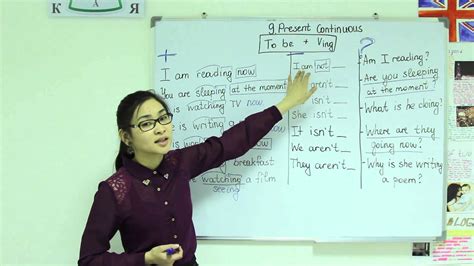 К
Я
9. Present Continuous
To be + Ving
+
I am reading now
You are sleeping at the moment
is watching TV now
is writing
breakfast
watching a film
seeing
–
I am not
aren't
isn't
She isn't
It isn't
We aren't
They aren't
?
Am I reading?
Are you sleeping
at the moment?
What is he doing?
Where are they
going now?
Why is she writing
a poem?